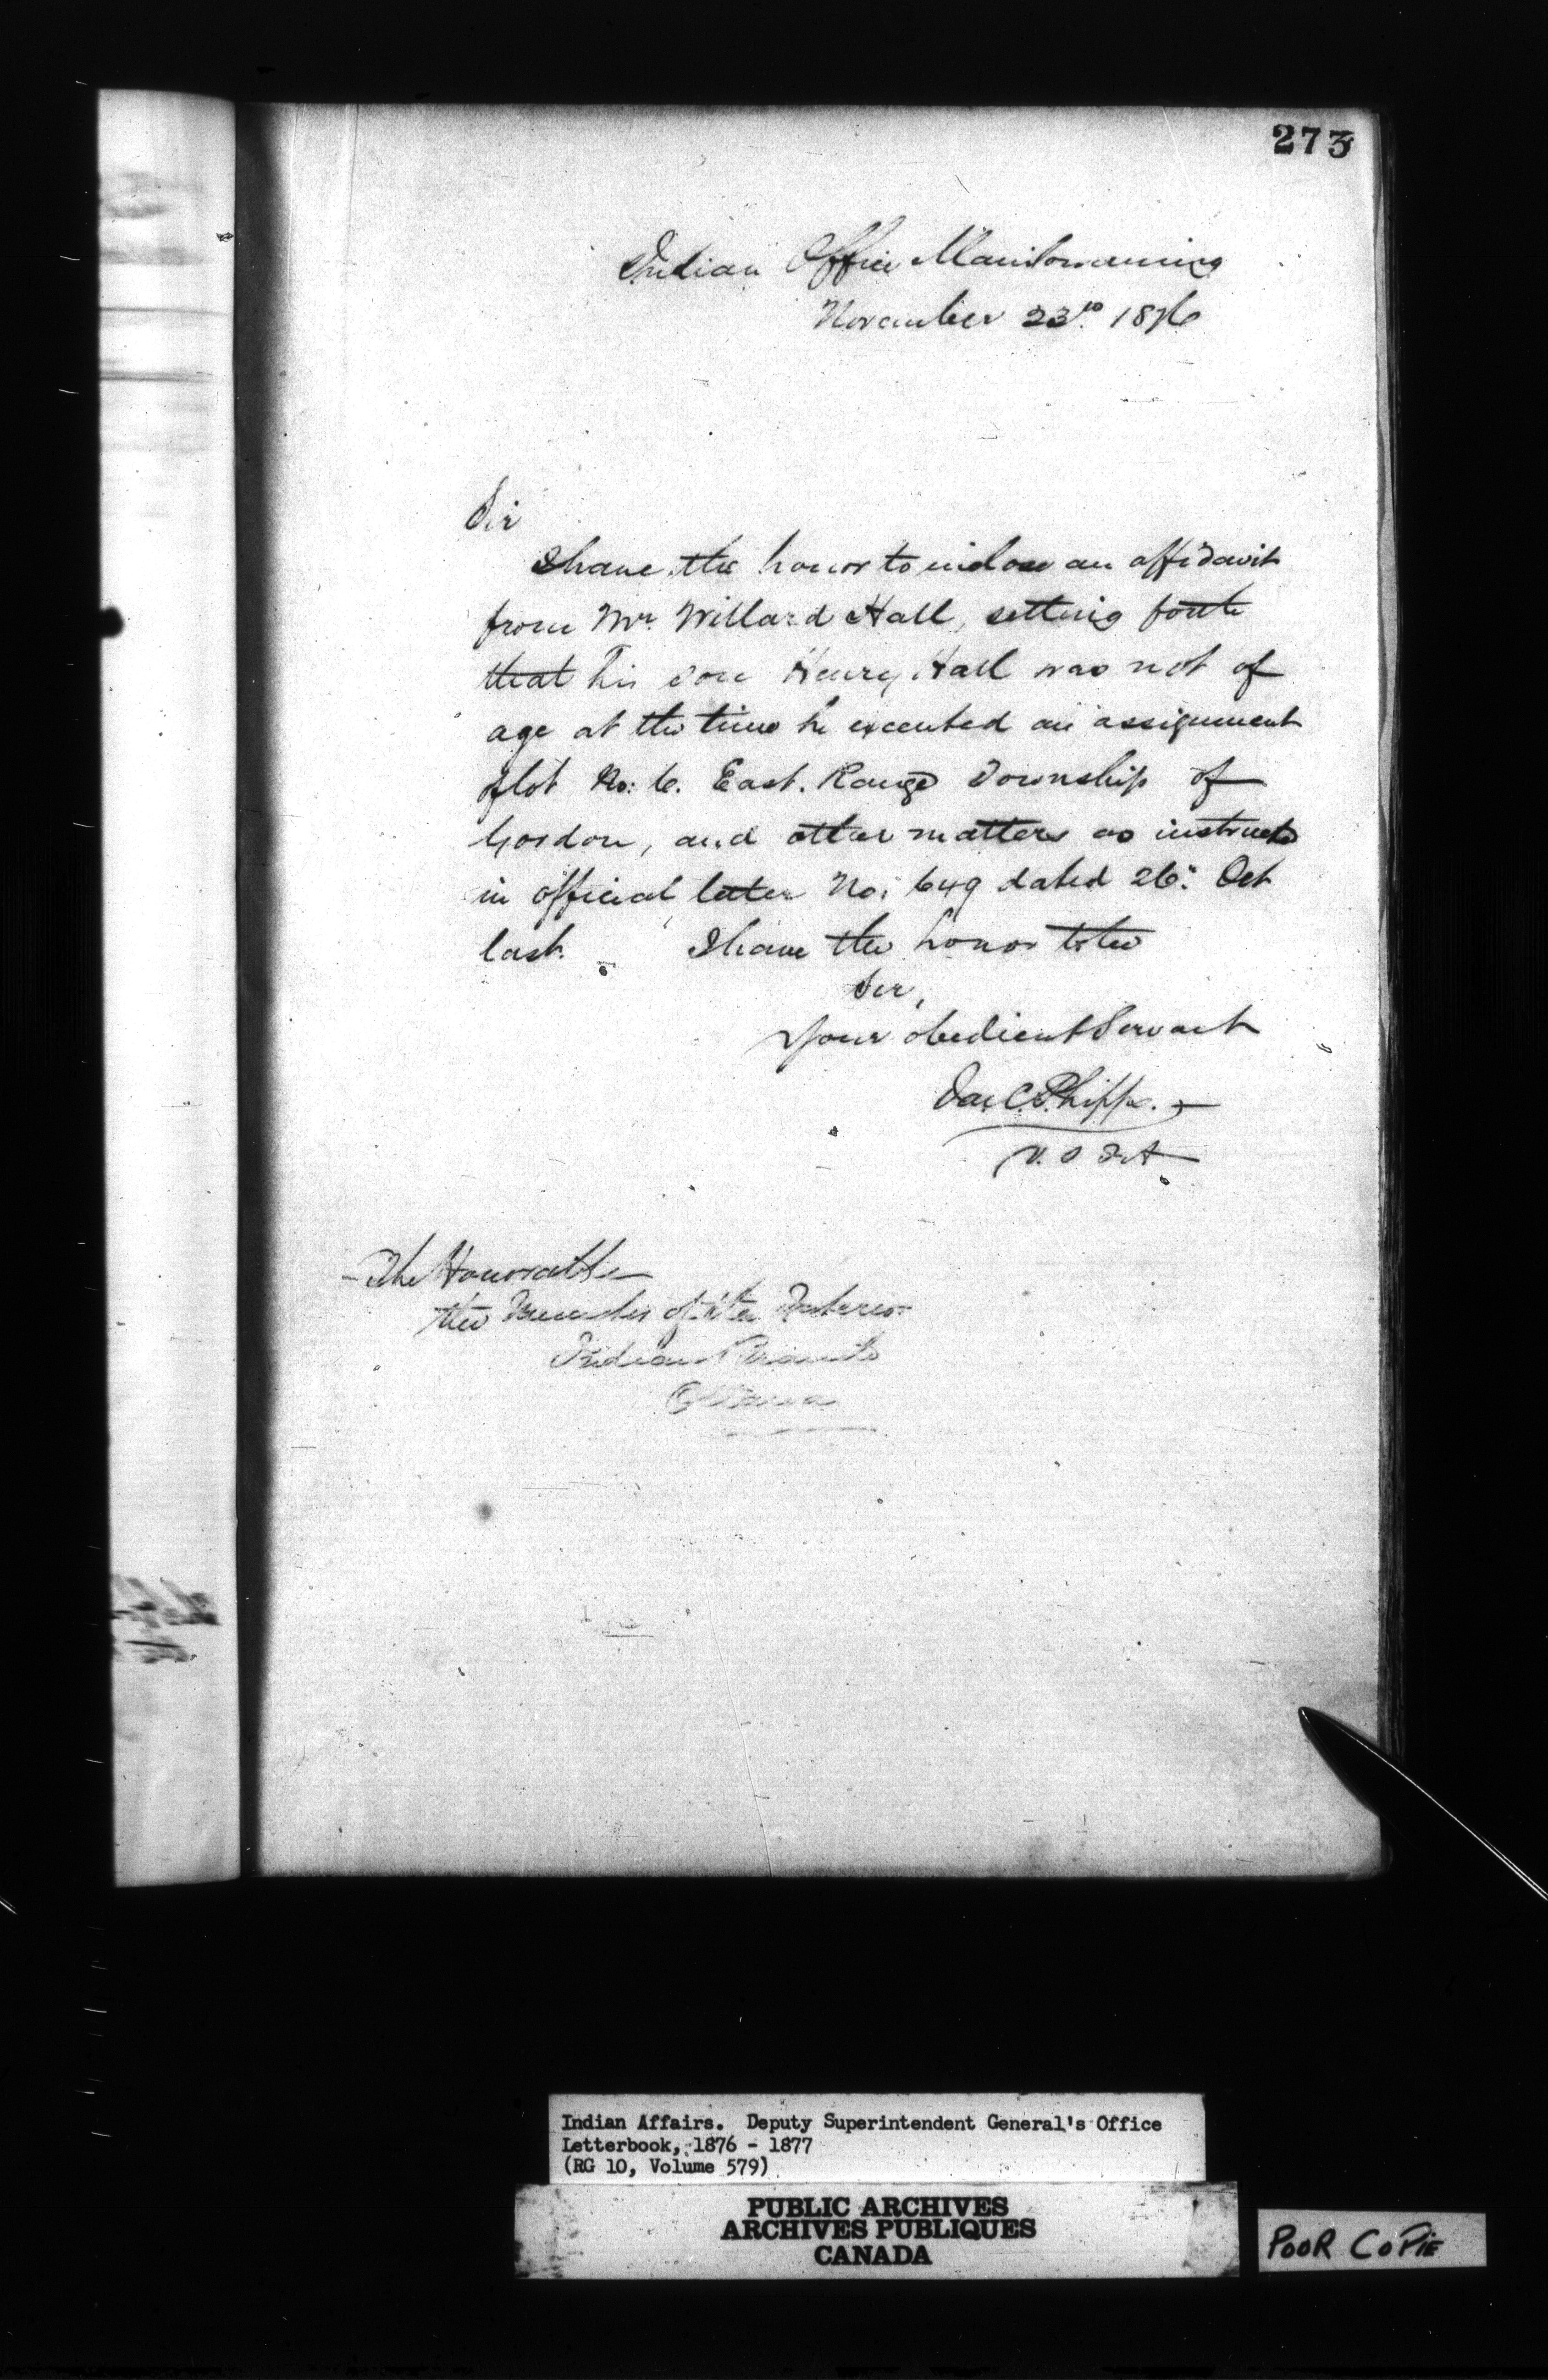 273
Indian Office Manitowaning
November 23rd. 1876
Sir
I have the honor to inclose an affidavit
from Mr. Willard Hall, setting forth
that his son Henry Hall was not of
age at the time he executed an assignment
of lot No: 6. East. Range Township of
Gordon, and other matters as instructed
in official letter No: 649 dated 26: Oct
last. I have the honor to be
Sir,
Your obedient Servant
Jas. C. Phipps.
V. S. I. A
The Honorable
the Minister of the Interior
Indian Branch
Ottawa
Indian Affairs. Deputy Superintendent General's Office
Letterbook, 1876 - 1877
(RG 10, Volume 579)
PUBLIC ARCHIVES
ARCHIVES PUBLIQUES
CANADA
POOR COPIE